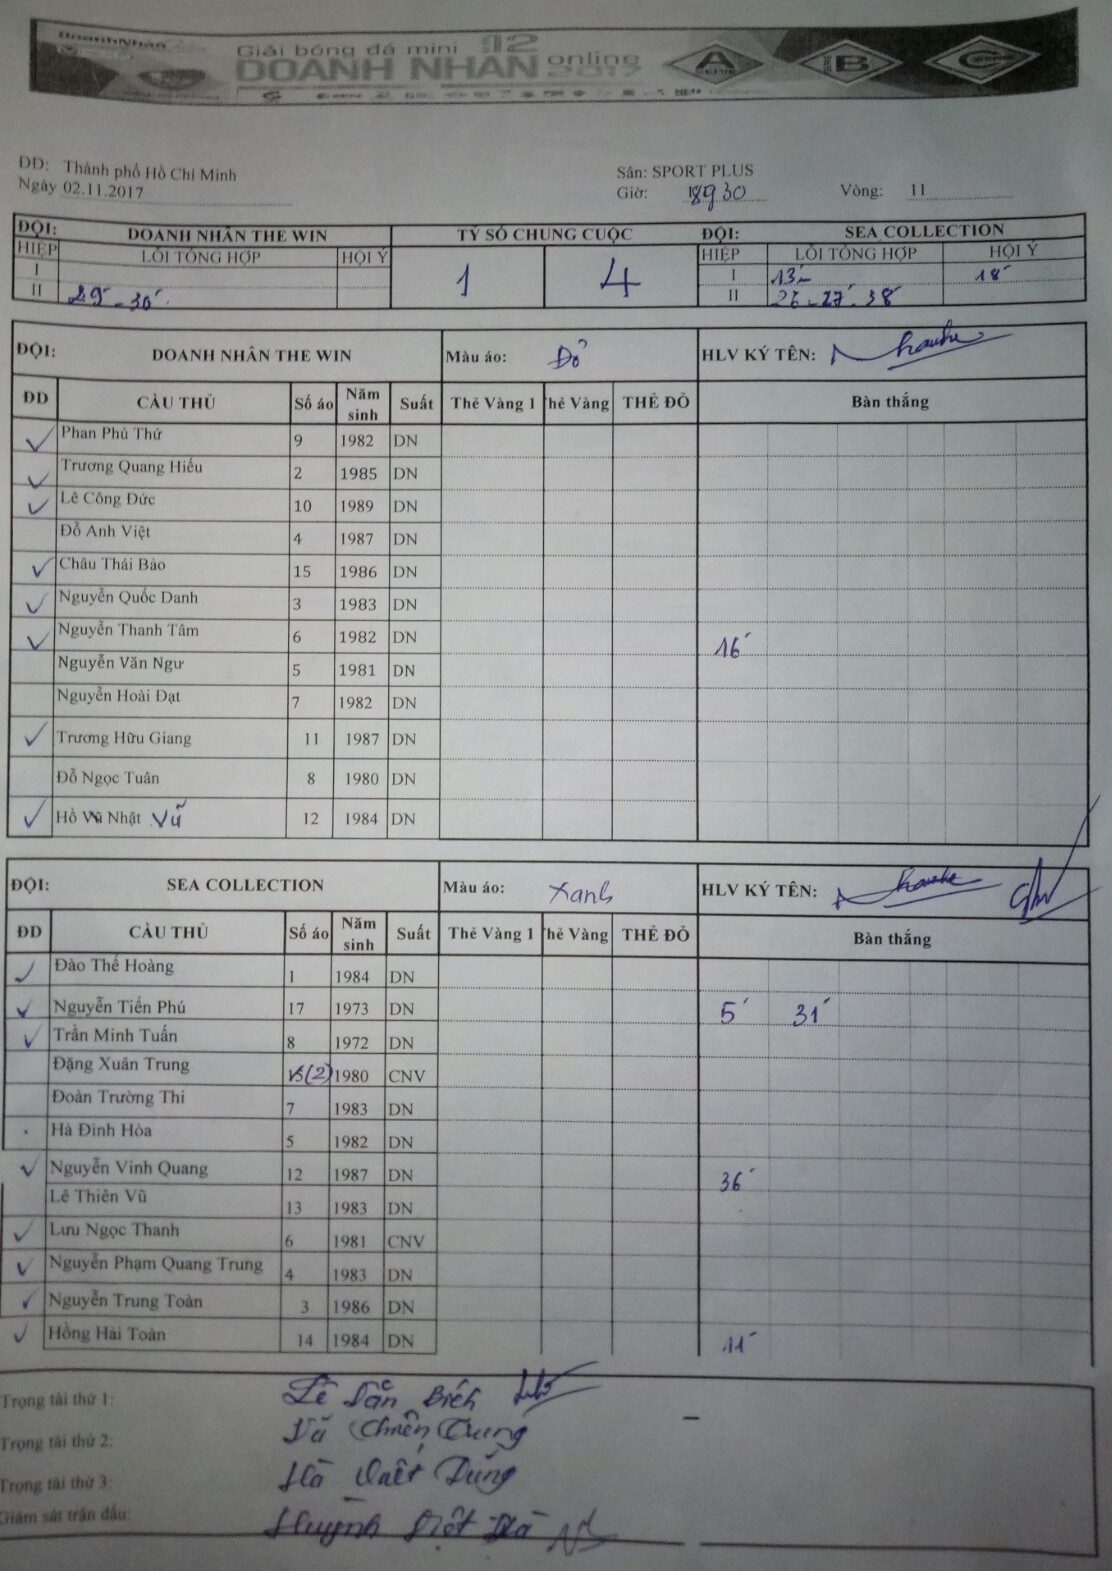 DoanhNhân
Giải bóng đá mini 12
DOANH NHÂN online 2017
A SERIE B C SERIE
ĐD: Thành phố Hồ Chí Minh Sân: SPORT PLUS
Ngày 02.11.2017 Giờ: 18g30 Vòng: 11
ĐỘI: DOANH NHÂN THE WIN TỶ SỐ CHUNG CUỘC ĐỘI: SEA COLLECTION
HIỆP LỖI TỔNG HỢP HỘI Ý 1 4 HIỆP LỖI TỔNG HỢP HỘI Ý
I I 13' 18'
II 29' - 30' II 26 - 27' 38'
ĐỘI: DOANH NHÂN THE WIN Màu áo: Đỏ HLV KÝ TÊN:
ĐD CẦU THỦ Số áo Năm sinh Suất Thẻ Vàng 1 Thẻ Vàng THẺ ĐỎ Bàn thắng
Phan Phú Thứ 9 1982 DN
Trương Quang Hiếu 2 1985 DN
Lê Công Đức 10 1989 DN
Đỗ Anh Việt 4 1987 DN
Châu Thái Bảo 15 1986 DN
Nguyễn Quốc Danh 3 1983 DN
Nguyễn Thanh Tâm 6 1982 DN 16'
Nguyễn Văn Ngư 5 1981 DN
Nguyễn Hoài Đạt 7 1982 DN
Trương Hữu Giang 11 1987 DN
Đỗ Ngọc Tuân 8 1980 DN
Hồ Vũ Nhật Vũ 12 1984 DN
ĐỘI: SEA COLLECTION Màu áo: Xanh HLV KÝ TÊN:
ĐD CẦU THỦ Số áo Năm sinh Suất Thẻ Vàng 1 Thẻ Vàng THẺ ĐỎ Bàn thắng
Đào Thế Hoàng 1 1984 DN
Nguyễn Tiến Phú 17 1973 DN 5' 31'
Trần Minh Tuấn 8 1972 DN
Đặng Xuân Trung (2) 1980 CNV
Đoàn Trường Thi 7 1983 DN
Hà Đình Hòa 5 1982 DN
Nguyễn Vinh Quang 12 1987 DN 36'
Lê Thiên Vũ 13 1983 DN
Lưu Ngọc Thanh 6 1981 CNV
Nguyễn Phạm Quang Trung 4 1983 DN
Nguyễn Trung Toàn 3 1986 DN
Hồng Hải Toàn 14 1984 DN 11'
Trọng tài thứ 1: Lê Tấn
Trọng tài thứ 2: Chiến Trung
Trọng tài thứ 3: Hà Dũng
Giám sát trận đấu: Huỳnh